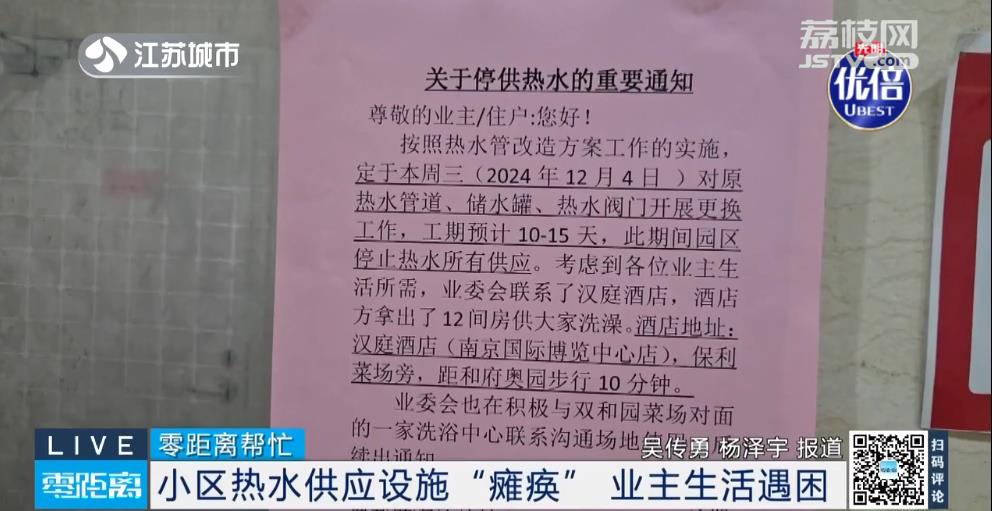 江苏城市
荔枝网
JSTV.com
光明
优倍
UBEST
关于停供热水的重要通知
尊敬的业主/住户:您好！
按照热水管改造方案工作的实施，
定于本周三（2024 年 12 月 4 日 ）对原
热水管道、储水罐、热水阀门开展更换
工作，工期预计 10-15 天，此期间园区
停止热水所有供应。考虑到各位业主生
活所需，业委会联系了汉庭酒店，酒店
方拿出了 12 间房供大家洗澡。酒店地址：
汉庭酒店（南京国际博览中心店），保利
菜场旁，距和府奥园步行 10 分钟。
业委会也在积极与双和园菜场对面
的一家洗浴中心联系沟通场地
续出通知
LIVE
零距离帮忙
吴传勇 杨泽宇 报道
零距离
小区热水供应设施“瘫痪” 业主生活遇困
扫码评论